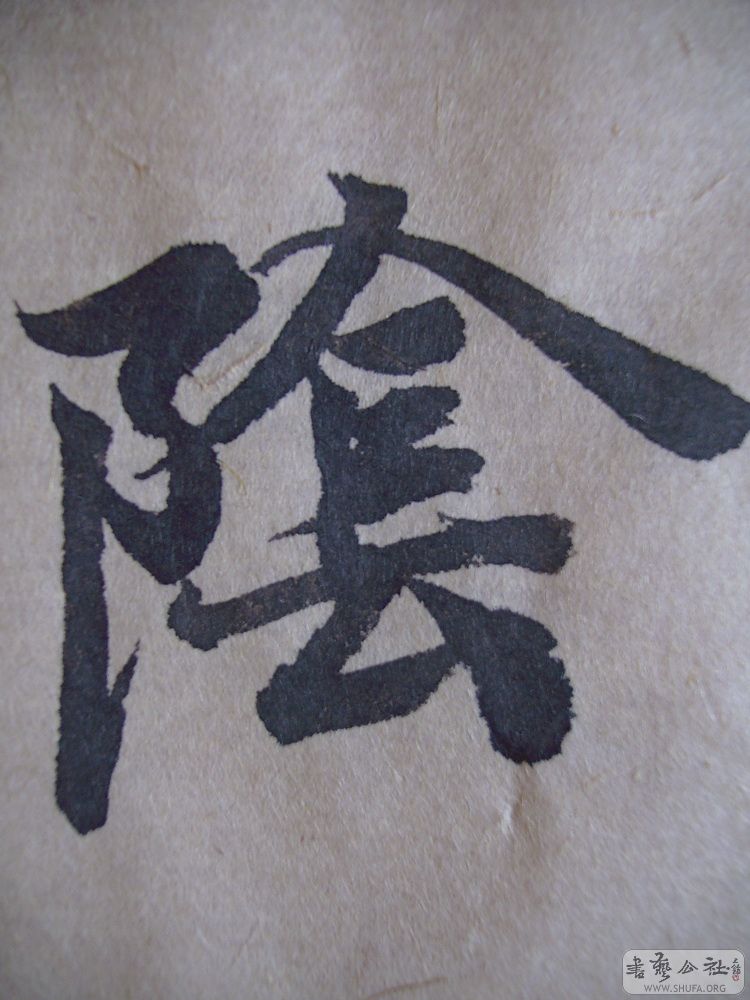 陰
書藝公社
WWW.SHUFA.ORG